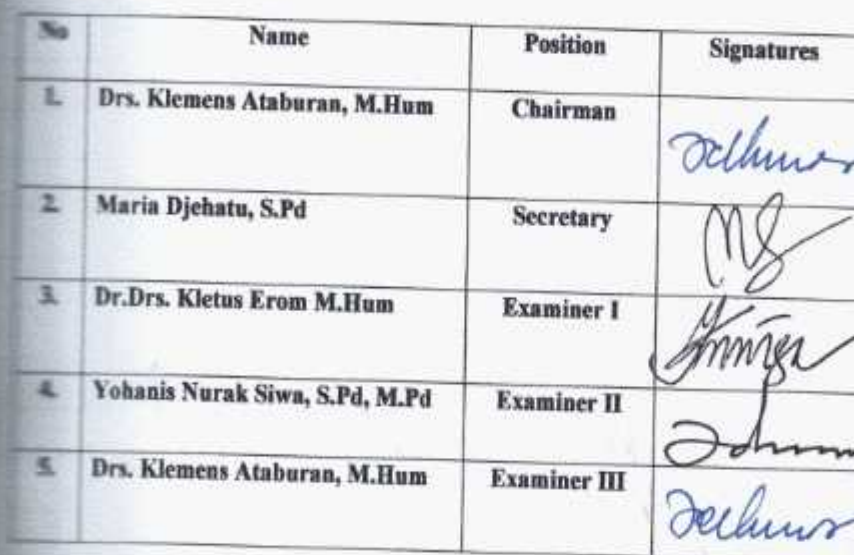 No Name Position Signatures
1. Drs. Klemens Ataburan, M.Hum Chairman
2. Maria Djehatu, S.Pd Secretary
3. Dr.Drs. Kletus Erom M.Hum Examiner I
4. Yohanis Nurak Siwa, S.Pd, M.Pd Examiner II
5. Drs. Klemens Ataburan, M.Hum Examiner III